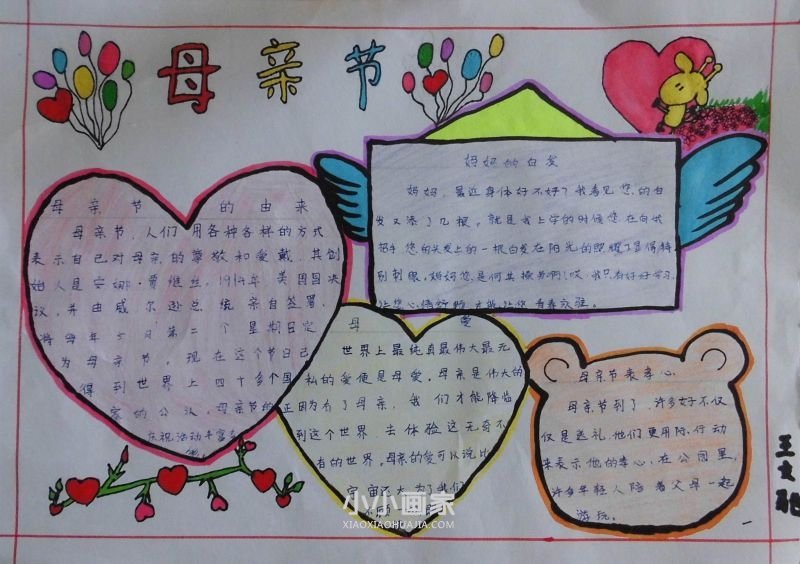 母亲节
母亲节的由来
母亲节,人们用各种各样的方式
表示自己对母亲的尊敬和爱戴。其创
始人是安娜·贾维丝。1914年,美国国决
议,并由威尔逊总统亲自签署,
将每年五月第二个星期日定
为母亲节,现在这个节日已
得到世界上四十多个国
家的公认,母亲节的
庆祝活动丰富
妈妈的白发
妈妈,最近身体好不好?我看见您的白
发又添了几根,就是我上学的时候您在向我
招手,您的头发上的一根白发在阳光的照耀下显得特
别刺眼。妈妈您是何其操劳啊!哎,我只有好好学习,
让您心情舒畅,才能让您青春永驻。
母爱
世界上最纯真最伟大最无
私的爱便是母爱。母亲是伟大的
正因为有了母亲,我们才能降临
到这个世界,去体验这无奇不
有的世界。母亲的爱可以说比
宇宙还大,为了我们
母亲节表孝心
母亲节到了,许多好不仅
仅是送礼,他们更用行动
来表示他的孝心,在公园里,
许多年轻人陪着父母一起
游玩。
小小画家
XIAOXIAOHUAJIA.COM